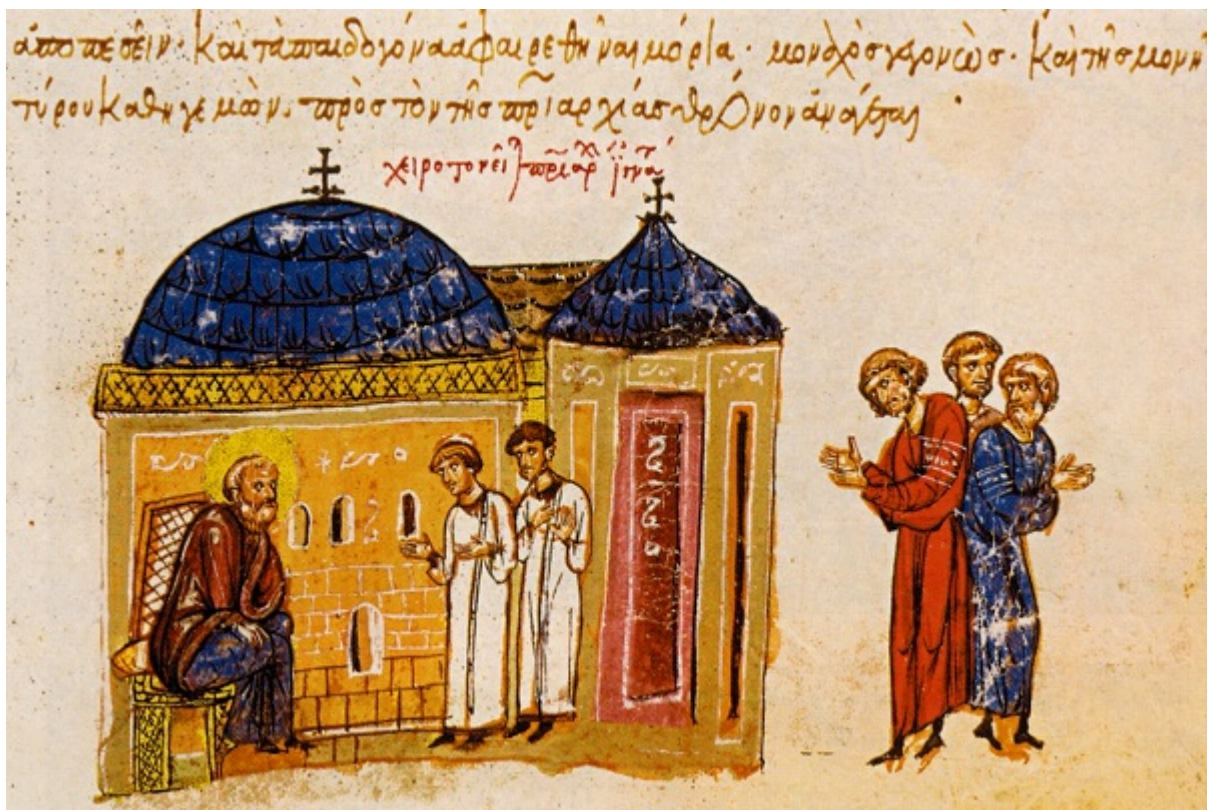 ἀποπεσεῖν· καὶ τὰ παιδογόνα ἀφαιρεθῆναι μόρια· μοναχὸς γεγονὼς· καὶ τῆς μονῆ
τύρου καθηγεμὼν, πρὸς τὸν τῆς πριαρχίας θρόνον ἀνάγεται
χειροτονεῖ πριαρχ ἰγνα